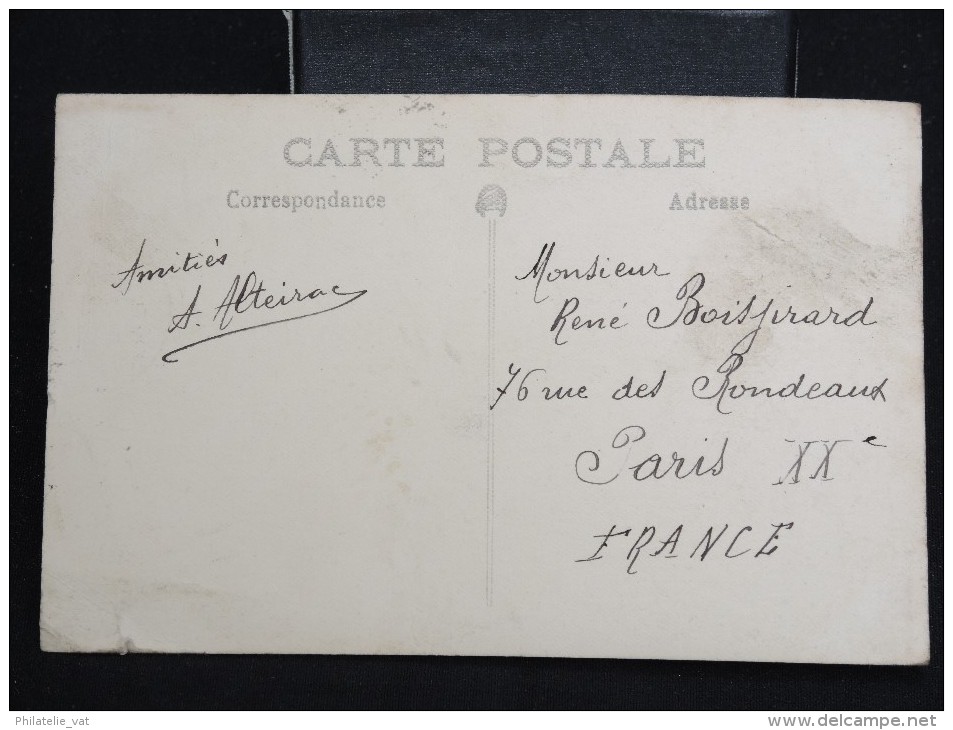 CARTE POSTALE
Correspondance
Adresse
Amitiés
A. Alteirac
Monsieur
René Boisjirard
76 rue des Rondeaux
Paris XXe
FRANCE
Philatelie_vat
www.delcampe.net